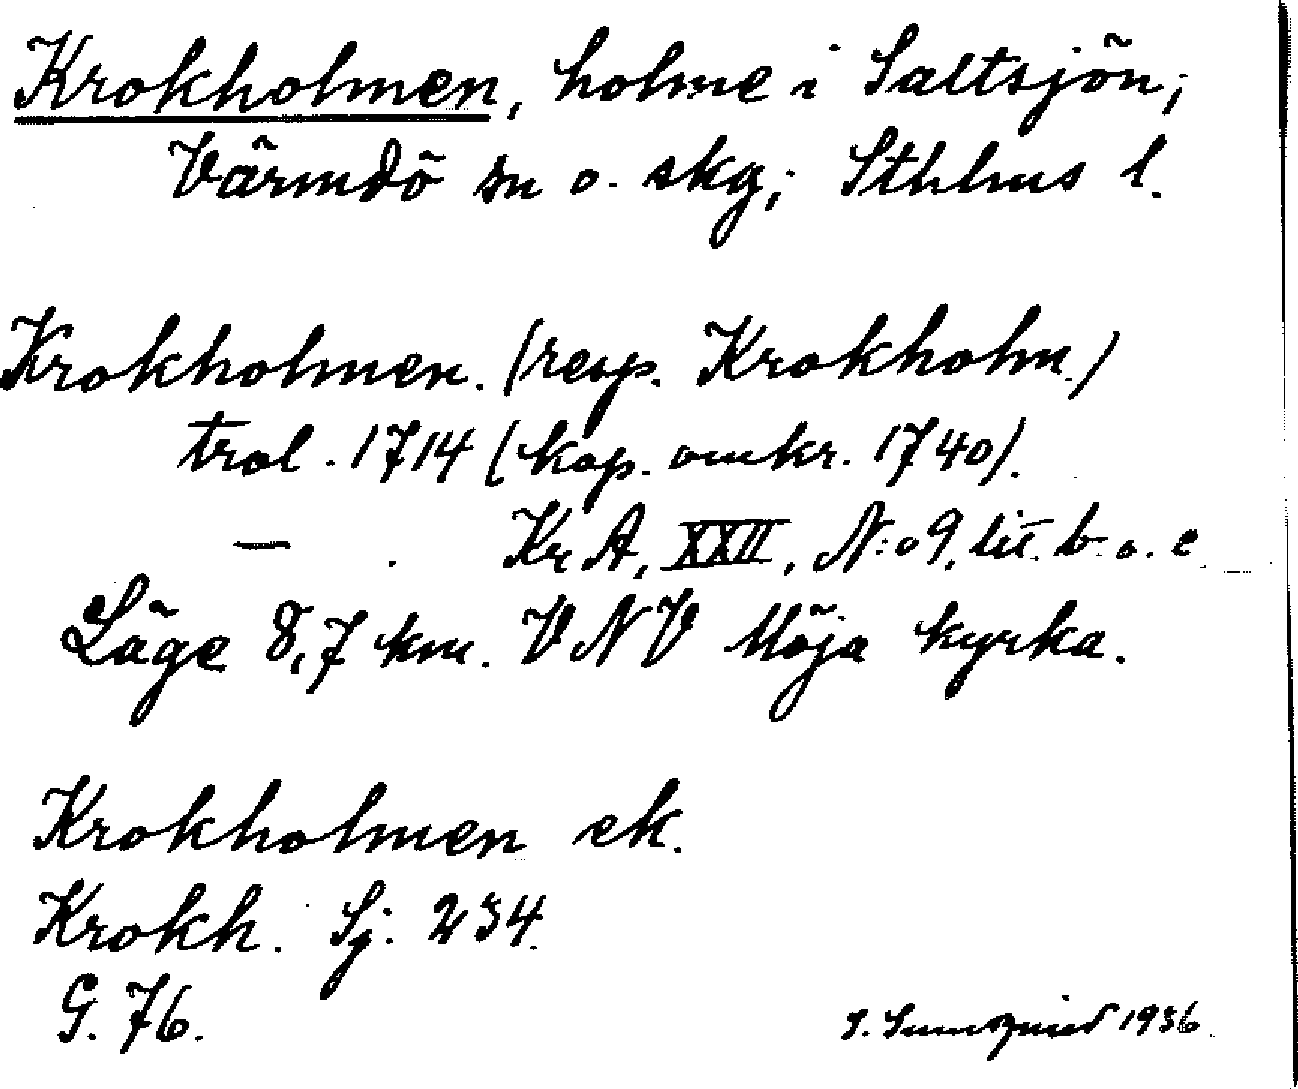 Krokholmen, holme i Saltsjön;
Värmdö sn o. skg; Sthlms l.
Krokholmen. (resp. Krokholm.)
trol. 1714 (kop. omkr. 1740).
— . Kr A, XXII, N:o 9. lit. b. o. c
Läge 8,7 km. VNV Möja kyrka.
Krokholmen ek.
Krokh. Sj. 234.
G. 76.
1936.